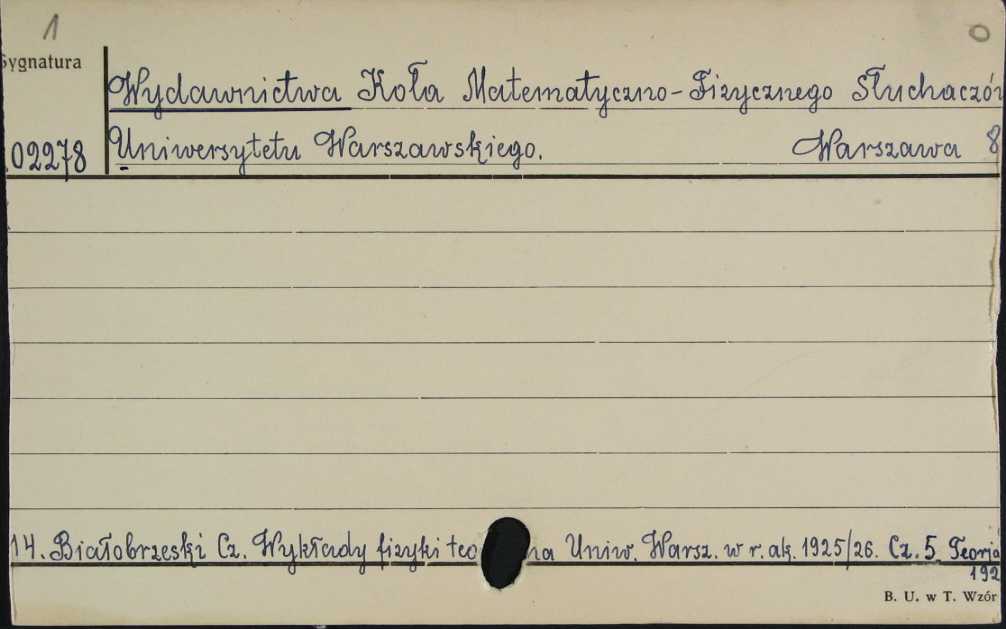 1
0
Sygnatura
Wydawnictwa Koła Matematyczno-Fizycznego Słuchaczów
02278 Uniwersytetu Warszawskiego. Warszawa 8
14. Białobrzeski Cz. Wykłady fizyki teo na Uniw. Warsz. w r. ak. 1925/26. Cz. 5. Teorja
192
B. U. w T. Wzór